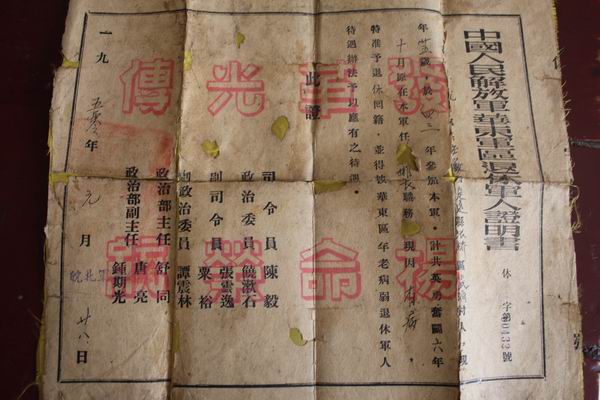 中國人民解放軍華東軍區退休軍人證明書
休字第0433號
年廿五歲,於四三年參加本軍,計共英勇奮鬭六年
十月原在本軍任排長職務,現因有病,
特准予退休回籍,並得按華東區年老病弱退休軍人
待遇辦法予以應有之待遇。
此證
司令員陳毅
政治委員饒漱石
副司令員張雲逸
粟裕
副政治委員譚震林
政治部主任舒同
政治部副主任唐亮
鍾期光
一九五零年元月廿八日
發揚革命光榮傳統